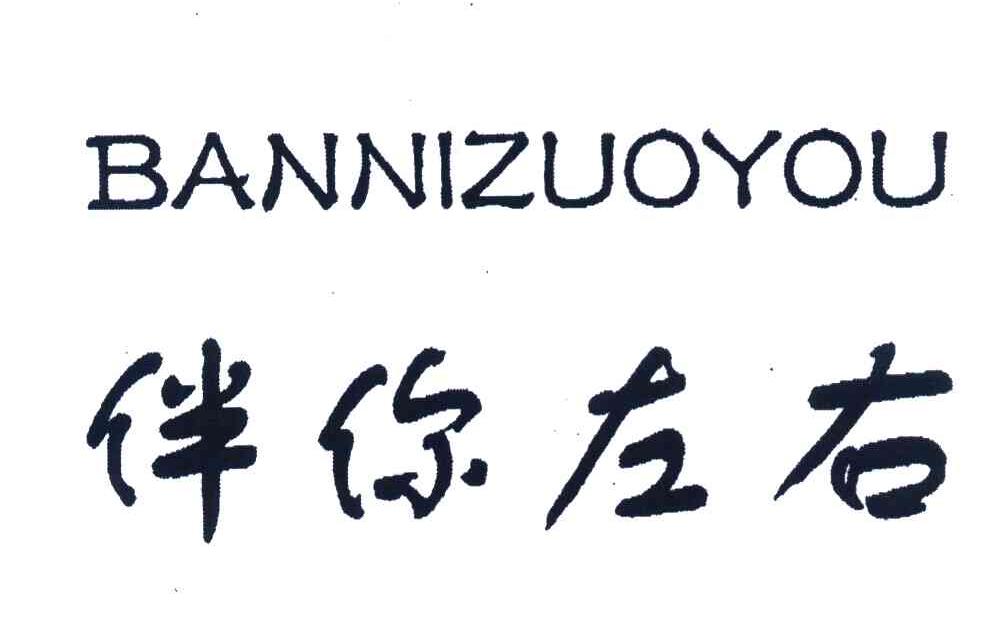 BANNIZUOYOU
伴你左右